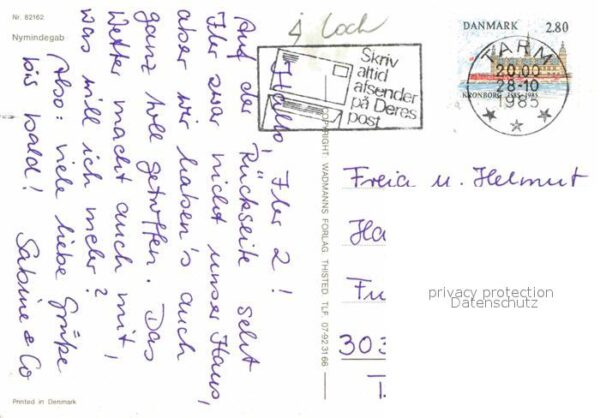 Nr. 82162
Nymindegab
Hallo, Ihr 2!
Auf der Rückseite seht
Ihr zwar nicht unser Haus,
aber wir haben's auch
ganz toll getroffen. Das
Wetter macht auch mit,
was will ich mehr?
Also: viele liebe Grüße
bis bald! Sabine & Co
Printed in Denmark
COPYRIGHT WADMANNS FORLAG, THISTED TLF. 07-92 31 66
j loch
Skriv
altid
afsender
på Deres
post
DANMARK 2.80
KRONBORG 1585-1985
TARM
20.00
28-10
1985
Freia u. Helmut
Ha
Fu
303
privacy protection
Datenschutz